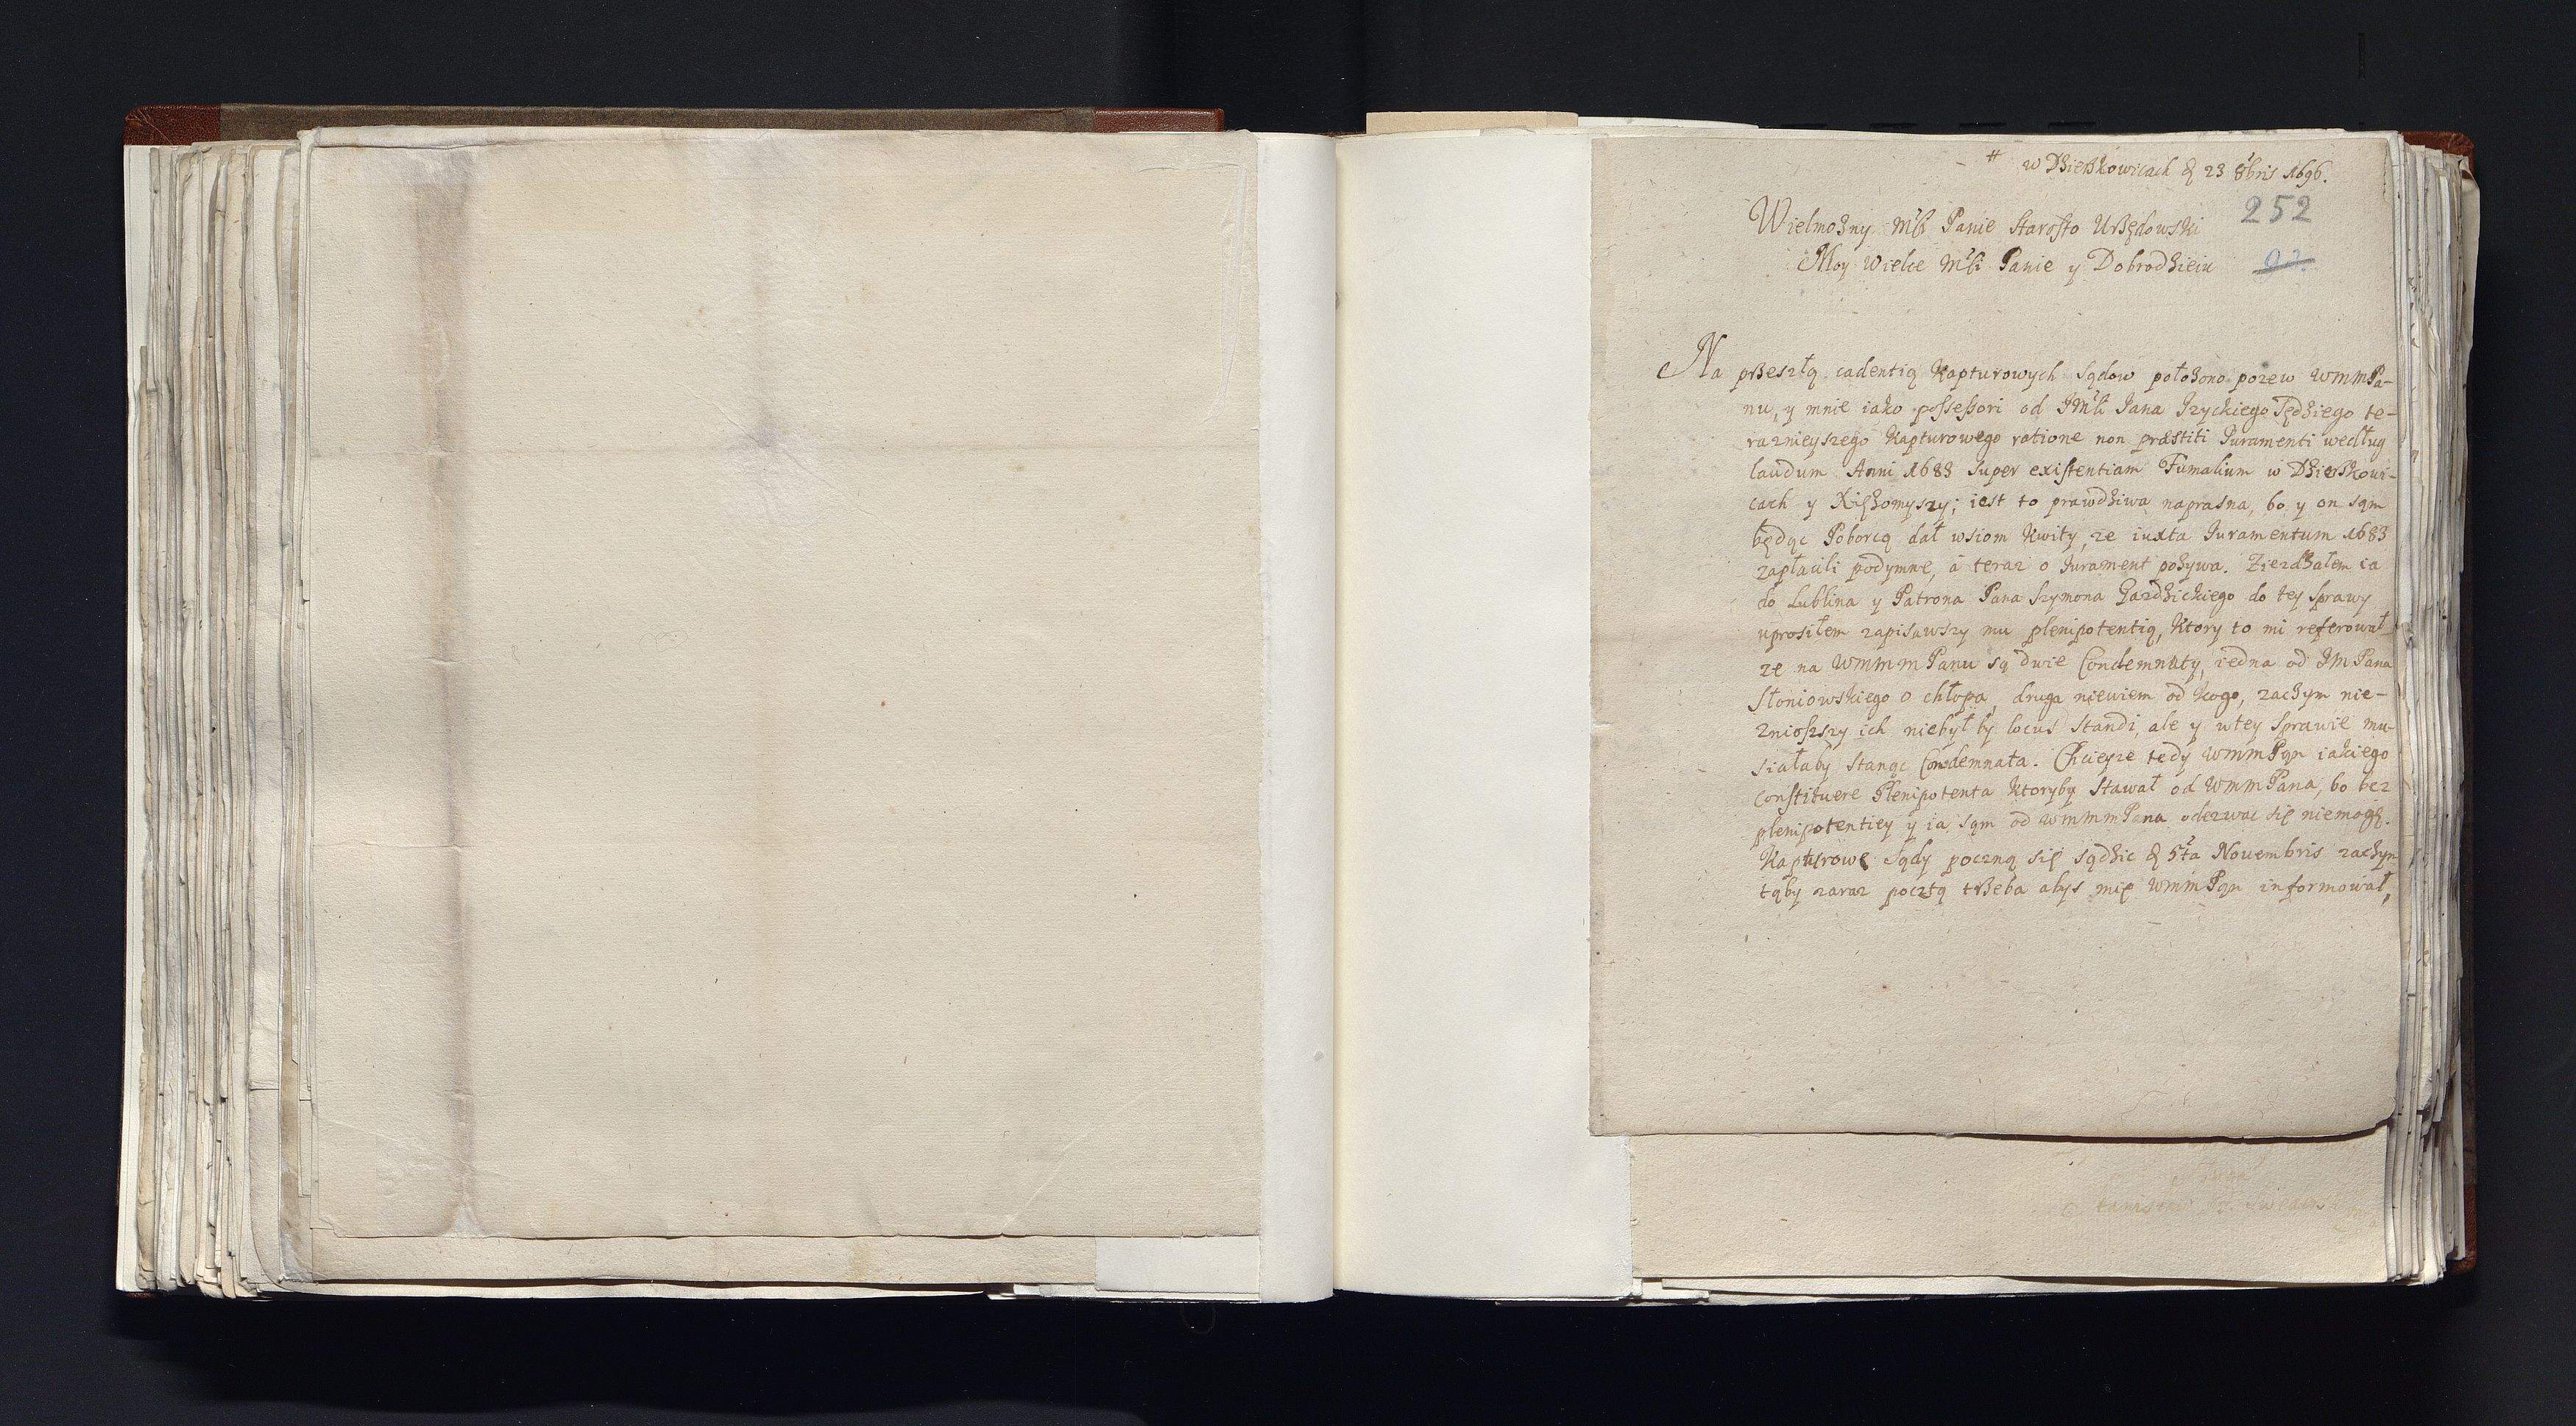 w Dzierzkowicach d 23 8bris 1696.
252
Wielmozny Mśći Panie Starosto Urzędowski
Moy Wielce Mśći Panie y Dobrodzieiu
Na przeszłą cadentią Kapturowych Sądow położono pozew WMMPa-
nu, y mnie iako possessori od JMśći Pana Izyckiego Sędziego te-
raznieyszego Kapturowego ratione non præstiti Juramenti według
laudum Anni 1683 super existentiam Fumalium w Dzierzkowi-
cach y Xiężomyszy; iest to prawdziwa naprasna, bo y on sąm
będąc Poborcą dał wsiom Kwity, ze iuxta Juramentum 1683
zapłacili podymne, á teraz o Jurament pozywa. Ziezdzałem ia
do Lublina y Patrona Pana Szymona Gazdzickiego do tey sprawy
uprosiłem zapisawszy mu plenipotentią, Ktory to mi referował
ze na WMMMPanu są dwie Condemnaty, iedna od JM Pana
Słoniowskiego o chłopa, druga niewiem od kogo, zaczym nie-
zniozszy ich niebył by locus standi, ale y wtey Sprawie mu-
siałaby stanąc Condemnata. Chcieyze tedy WMMPąn iakiego
constituere Plenipotenta Ktoryby stawał od WMMPana, bo bez
plenipotentiey y ia sąm od WMMMPana odezwac się niemogę.
Kapturowe Sądy poczną się sądzic d 5ta Nouembris zaczym
tąby zaraz pocztą trzeba abys mię WMMPąn informował,